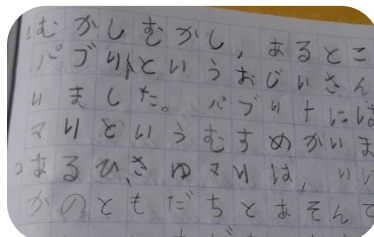 むかしむかし、あるとこ
パブりトというおじいさん
いました。パブリトには
マリというむすめがいま
あるひ、さゆマリは、い
かのともだちとあそんで